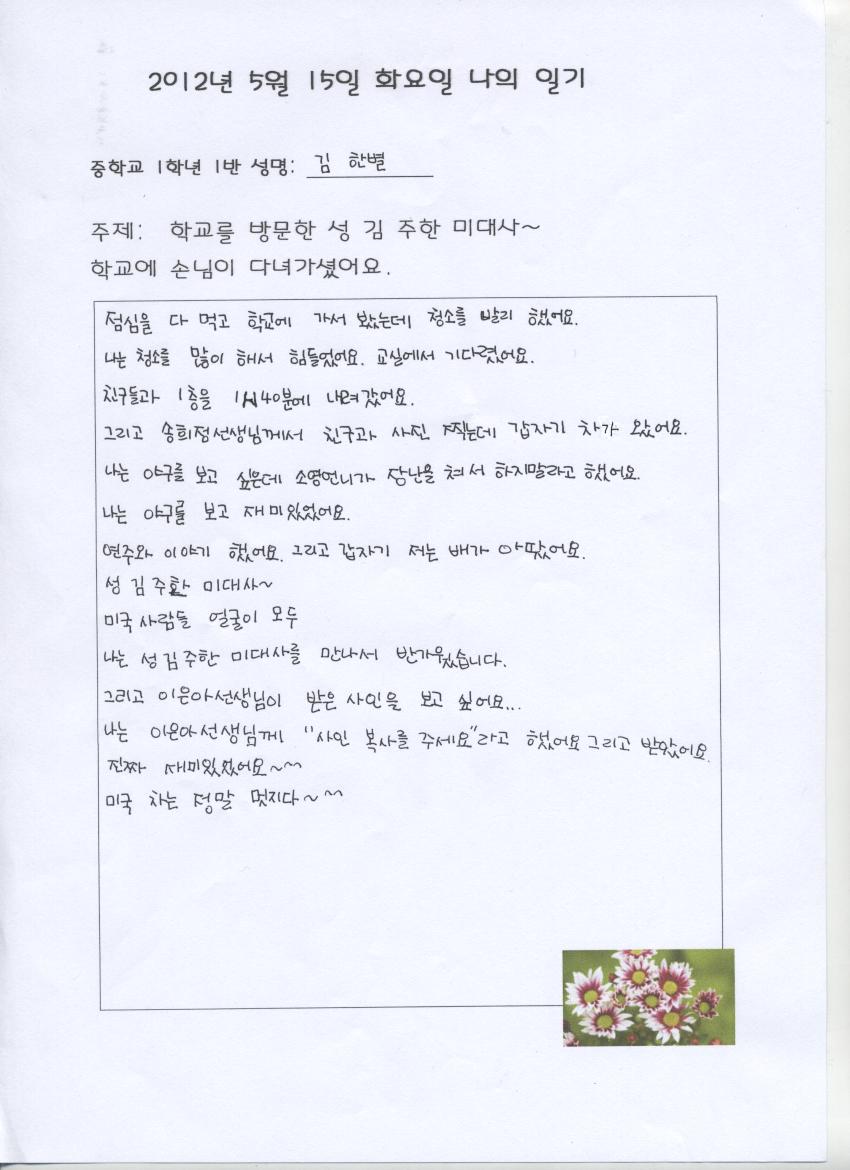 2012년 5월 15일 화요일 나의 일기
중학교 1학년 1반 성명: 김 한별
주제: 학교를 방문한 성 김 주한 미대사~
학교에 손님이 다녀가셨어요.
점심을 다 먹고 학교에 가서 봤는데 청소를 빨리 했어요.
나는 청소를 많이 해서 힘들었어요. 교실에서 기다렸어요.
친구들과 1층을 1시40분에 내려갔어요.
그리고 송희정선생님께서 친구과 사진 찍는데 갑자기 차가 왔어요.
나는 야구를 보고 싶은데 소영언니가 장난을 쳐서 하지말라고 했어요.
나는 야구를 보고 재미있었어요.
연주와 이야기 했어요. 그리고 갑자기 저는 배가 아팠어요.
성 김 주한 미대사~
미국사람들 얼굴이 모두
나는 성김주한 미대사를 만나서 반가웠습니다.
그리고 이은아선생님이 받은 사인을 보고 싶어요...
나는 이은아선생님께 "사인 복사를 주세요"라고 했어요 그리고 받았어요.
진짜 재미있었어요~^^
미국 차는 정말 멋지다~^^